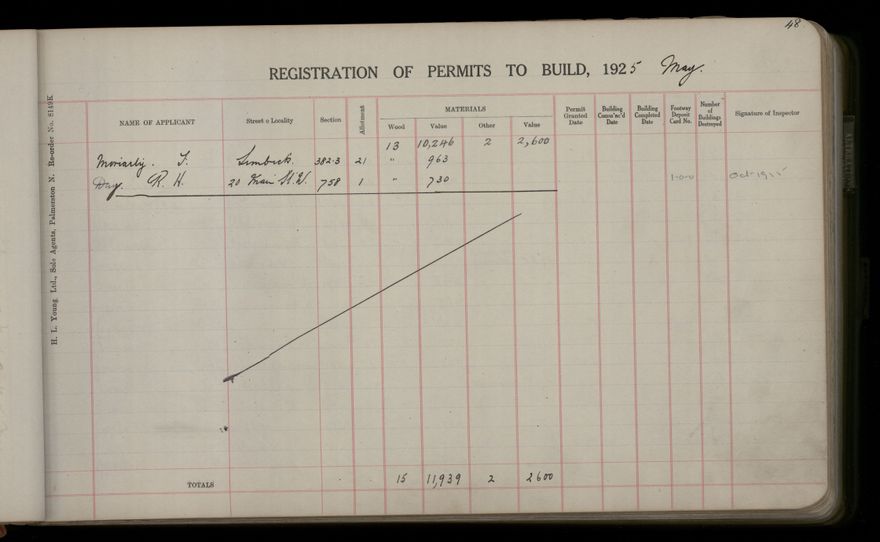 48
REGISTRATION OF PERMITS TO BUILD, 1925 May.
NAME OF APPLICANT Street o Locality Section Allotment MATERIALS Wood Value Other Value Permit Granted Date Building Comm'nc'd Date Building Completed Date Footway Deposit Card No. Number of Buildings Destroyed Signature of Inspector
13 10,246 2 2,600
T. 382.3 21 " 963
Day. R. H. 20 Main St. W. 758 1 " 730 1-0-0
TOTALS 15 11,939 2 2600
H. L. Young Ltd., Sole Agents, Palmerston N. Re-order No. 8149K